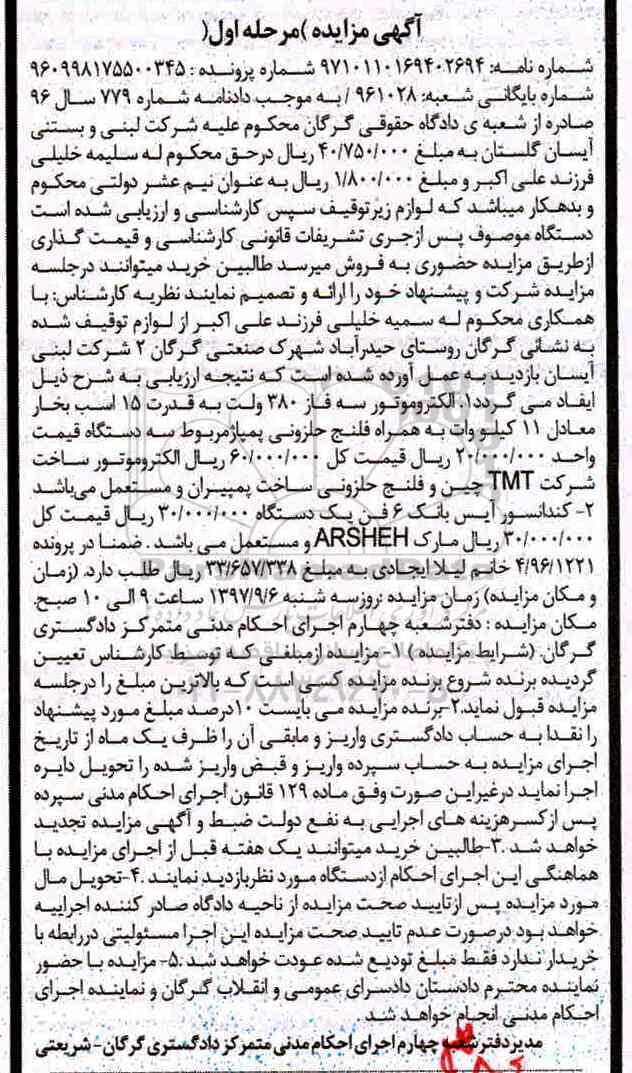 آگهی مزایده )مرحله اول(
شماره نامه: ۹۷۱۰۱۱۰۱۶۹۴۰۲۶۹۴ شماره پرونده : ۹۶۰۹۹۸۱۷۵۵۰۰۳۴۵
شماره بایگانی شعبه: ۹۶۱۰۲۸ / به موجب دادنامه شماره ۷۷۹ سال ۹۶
صادره از شعبه ی دادگاه حقوقی گرگان محکوم علیه شرکت لبنی و بستنی
آیسان گلستان به مبلغ ۴۰/۷۵۰/۰۰۰ ریال درحق محکوم له سلیمه خلیلی
فرزند علی اکبر و مبلغ ۱/۸۰۰/۰۰۰ ریال به عنوان نیم عشر دولتی محکوم
و بدهکار میباشد که لوازم زیرتوقیف سپس کارشناسی و ارزیابی شده است
دستگاه موصوف پس ازجری تشریفات قانونی کارشناسی و قیمت گذاری
ازطریق مزایده حضوری به فروش میرسد طالبین خرید میتوانند درجلسه
مزایده شرکت و پیشنهاد خود را ارائه و تصمیم نمایند نظریه کارشناس: با
همکاری محکوم له سمیه خلیلی فرزند علی اکبر از لوازم توقیف شده
به نشانی گرگان روستای حیدرآباد شهرک صنعتی گرگان ۲ شرکت لبنی
آیسان بازدید به عمل آورده شده است که نتیجه ارزیابی به شرح ذیل
ایفاد می گردد۱. الکتروموتور سه فاز ۳۸۰ ولت به قدرت ۱۵ اسب بخار
معادل ۱۱ کیلو وات به همراه فلنج حلزونی پمپاژمربوط سه دستگاه قیمت
واحد ۲۰/۰۰۰/۰۰۰ ریال قیمت کل ۶۰/۰۰۰/۰۰۰ ریال الکتروموتور ساخت
شرکت TMT چین و فلنج حلزونی ساخت پمپیران و مستعمل می‌باشد
۲- کندانسور آیس بانک ۶ فن یک دستگاه ۳۰/۰۰۰/۰۰۰ ریال قیمت کل
۳۰/۰۰۰/۰۰۰ ریال مارک ARSHEH و مستعمل می باشد . ضمنا در پرونده
۴/۹۶/۱۲۲۱ خانم لیلا ایجادی به مبلغ ۳۳/۶۵۷/۳۳۸ ریال طلب دارد. (زمان
و مکان مزایده) زمان مزایده :روزسه شنبه ۱۳۹۷/۹/۶ ساعت ۹ الی ۱۰ صبح.
مکان مزایده : دفترشعبه چهارم اجرای احکام مدنی متمرکز دادگستری
گرگان. (شرایط مزایده )۱- مزایده ازمبلغی که توسط کارشناس تعیین
گردیده برنده شروع برنده مزایده کسی است که بالاترین مبلغ را درجلسه
مزایده قبول نماید.۲-برنده مزایده می بایست ۱۰درصد مبلغ مورد پیشنهاد
را نقدا به حساب دادگستری واریز و مابقی آن را ظرف یک ماه از تاریخ
اجرای مزایده به حساب سپرده واریز و قبض واریز شده را تحویل دایره
اجرا نماید درغیراین صورت وفق ماده ۱۲۹ قانون اجرای احکام مدنی سپرده
پس ازکسرهزینه های اجرایی به نفع دولت ضبط و آگهی مزایده تجدید
خواهد شد .۳-طالبین خرید میتوانند یک هفته قبل از اجرای مزایده با
هماهنگی این اجرای احکام ازدستگاه مورد نظربازدید نمایند .۴-تحویل مال
مورد مزایده پس ازتایید صحت مزایده از ناحیه دادگاه صادر کننده اجراییه
خواهد بود درصورت عدم تایید صحت مزایده این اجرا مسئولیتی دررابطه با
خریدار ندارد فقط مبلغ تودیع شده عودت خواهد شد .۵- مزایده با حضور
نماینده محترم دادستان دادسرای عمومی و انقلاب گرگان و نماینده اجرای
احکام مدنی انجام خواهد شد .
مدیردفترشعبه چهارم اجرای احکام مدنی متمرکز دادگستری گرگان- شریعتی